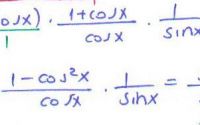 osx) · (1+cosx)/cosx · 1/sinx
1
(1-cos²x)/cosx · 1/sinx =